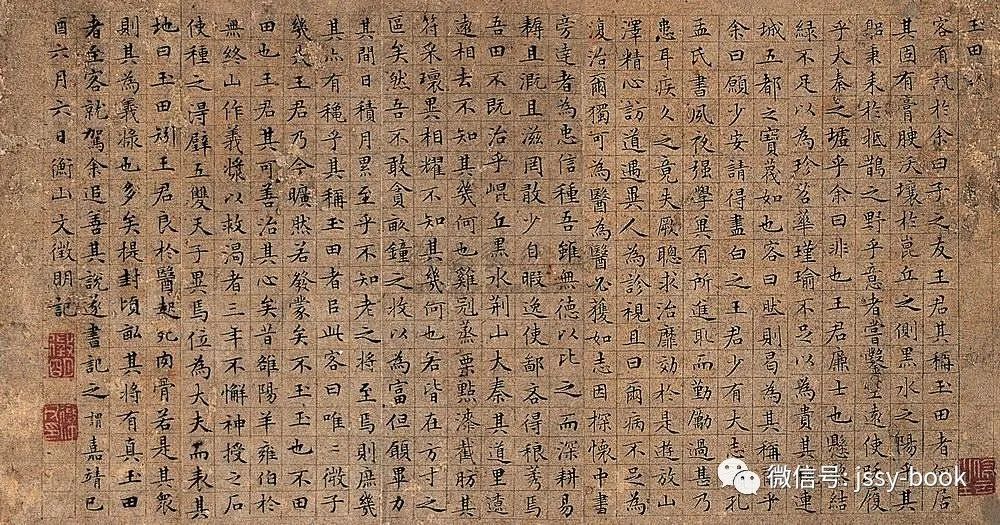 玉田
客有訊於余曰子之友王君其稱玉田者居
其固有膏腴沃壤於崑丘之側黑水之陽乎其
貽秉耒於抵鵲之野乎意者嘗鑿空遠使往復
乎大秦之墟乎余曰非也王君廉士也懸結
綠不足以為珍苕華瑾瑜不足以為貴其連
城五都之寶蔑如也客曰然則曷為其稱乎
余曰願少安請得盡白之王君少有大志孔
孟氏書夙夜强學異有所進耴而勤勩過甚乃
患耳疾久之竟失厥聰求治靡効於是遊放山
澤精心訪道遇異人為診視且曰爾病不足為
復治爾獨可為醫為醫必獲如志因探懷中書
旁達者為忠信種吾雖無德以比之而深耕易
耨且溉且滋罔敢少自暇逸使鄙吝得稂莠焉
吾田不既治乎崐丘黒水荆山大秦其道里遼
遠相去不知其幾何也雞冠蒸栗點漆截肪其
符采瓌異相耀不知其幾何也若皆在方寸之
區矣然吾不敢貪畝鐘之收以為富但願畢力
其間日積月累至乎不知老之將至焉則庶幾
其亦有穫乎其稱玉田者㠯此客曰唯〻微子
幾失王君乃今曠然若發蒙矣不玉玉也不田
田也王君其可善治其心矣昔雒陽羊雍伯於
無終山作義漿以救渴者三年不懈神授之石
使種之得璧五雙天子異焉位為大夫而表其
地曰玉田矧王君良於醫起死肉骨若是其衆
則其為義漿也多矣提封頃畝其將有真玉田
者至客就駕余追善其說遂書記之時嘉靖己
酉六月六日衡山文徵明記
微信号: jssy-book